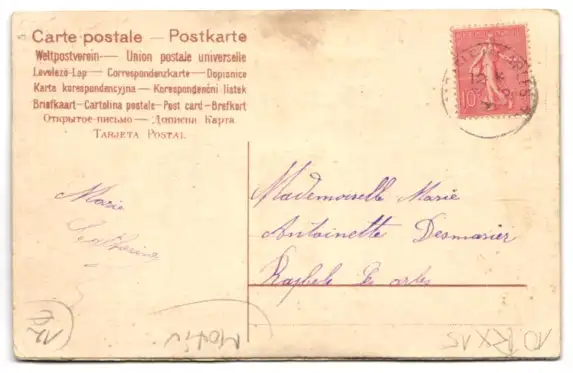 Carte postale — Postkarte
Weltpostverein — Union postale universelle
Levelező-Lap — Correspondenzkarte — Dopisnice
Karta korespondencyjna — Korespondenční lístek
Briefkaart - Cartolina postale - Post card - Brefkort
Открытое-письмо — Дописни Карта
TARJETA POSTAL
10
Marie
Mademoiselle Marie
Antoinette Desmasier
Raphele les arles